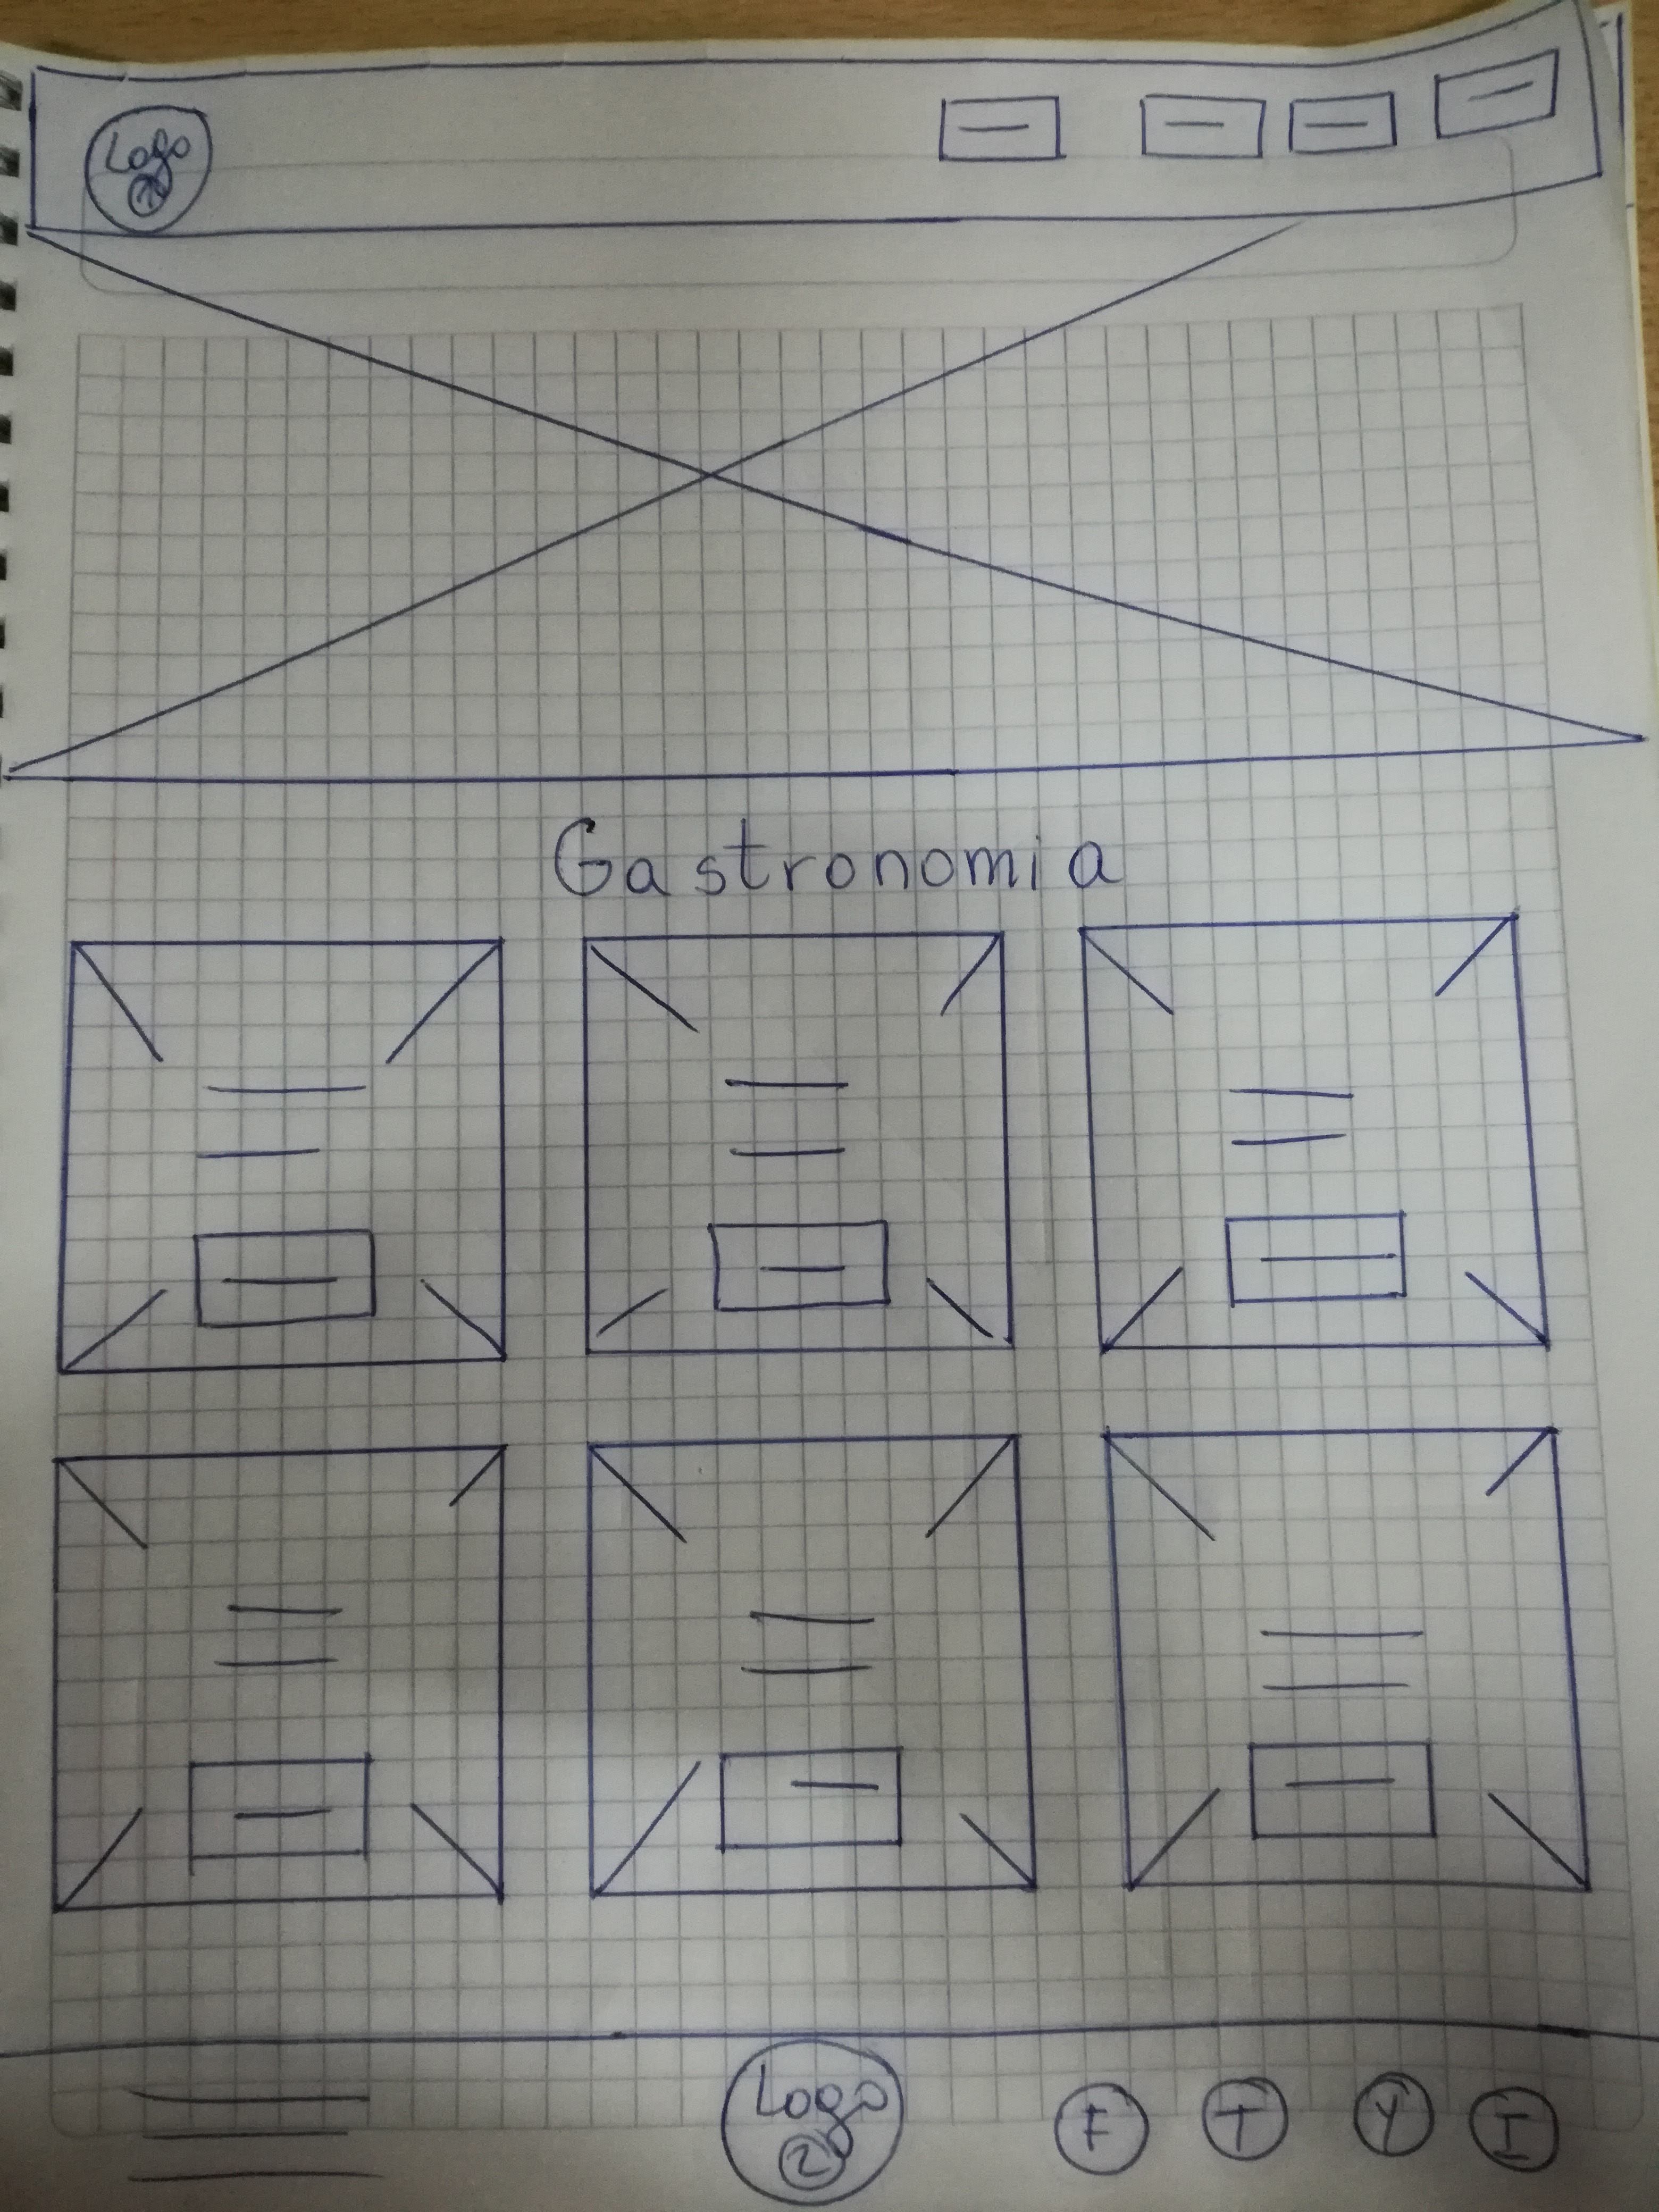 Logo
Gastronomia
Logo
2
F T Y I